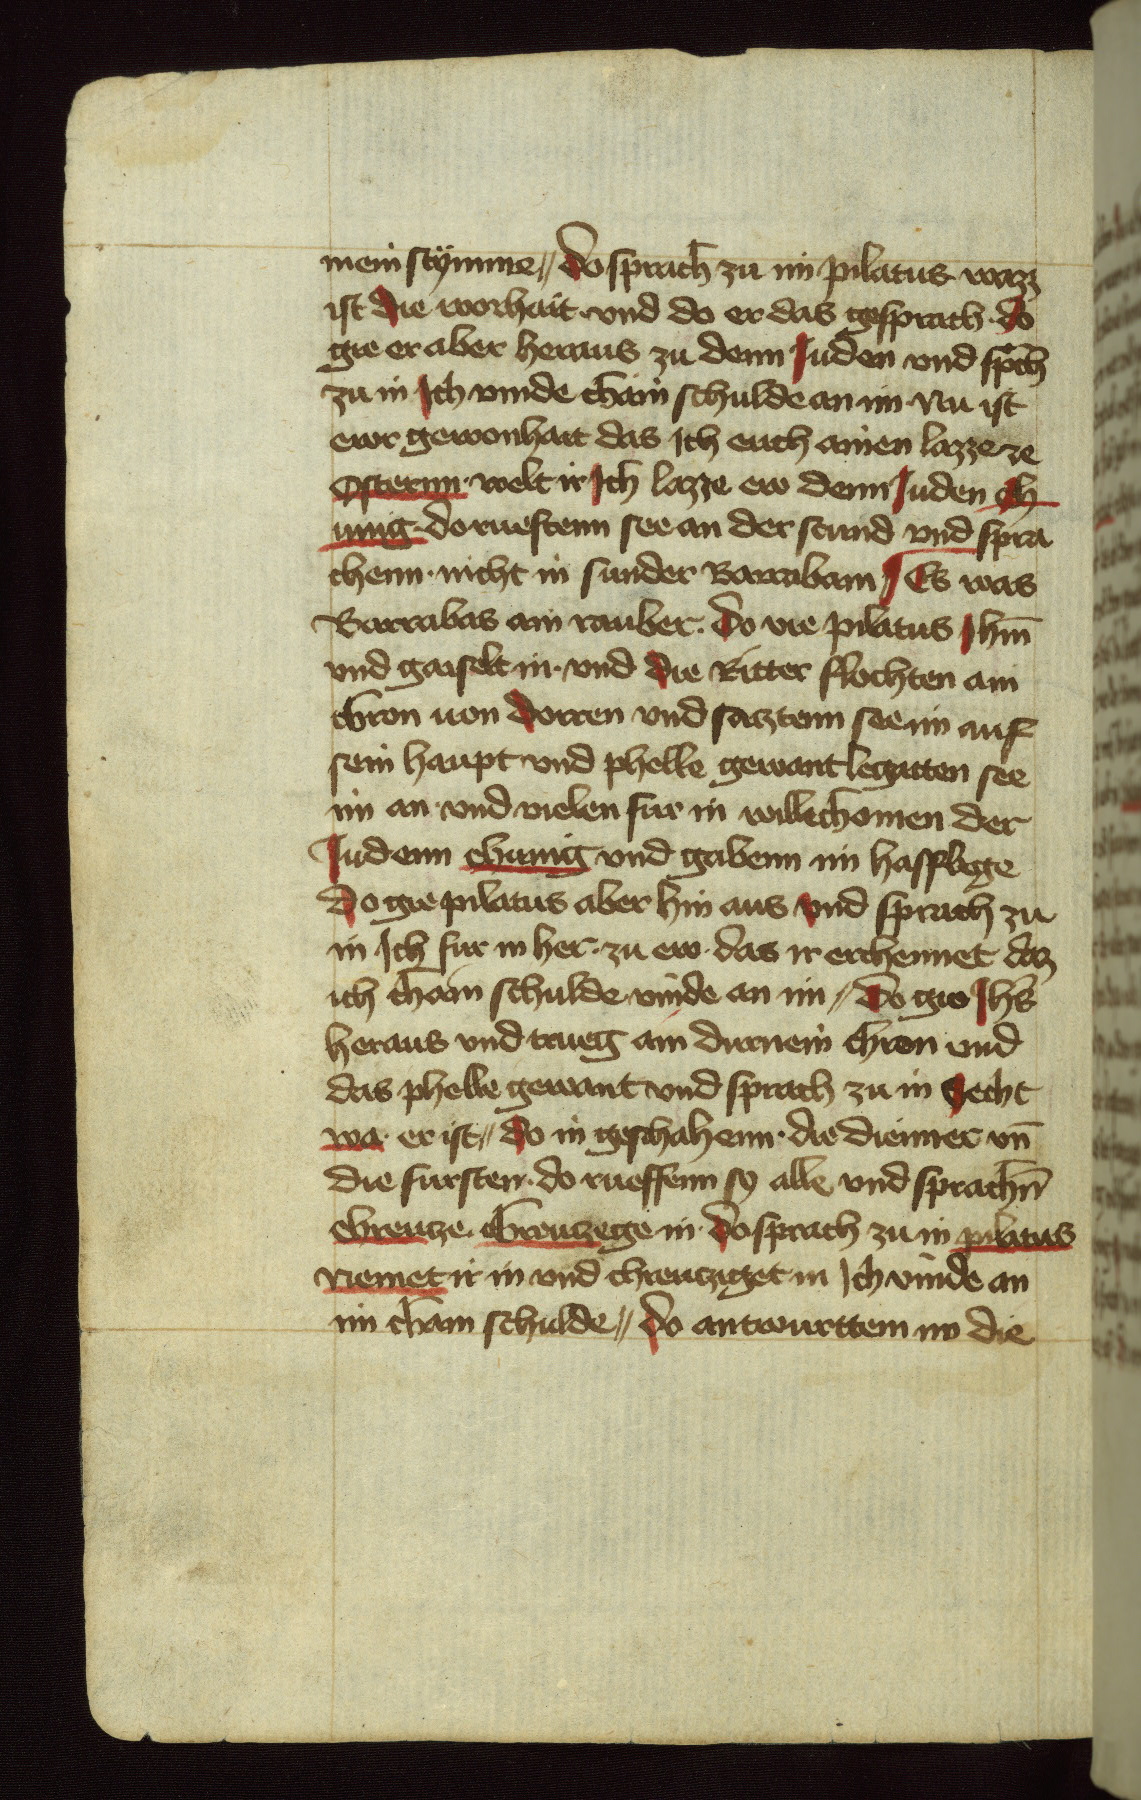 mein stÿmme // do sprach zu im pilatus wazz
ist die worhait · vnd do er das gesprach · do
gie er aber heraus zu denn Juden vnd sp̄ch
zu in Ich vinde chain schulde an im · Nu ist
ewr gewonhait das Ich euch ainen lazze ze
Osternn · welt ir Ich lazze ew denn Juden ch
unig · do rueftenn see an der stund vnd spra
chenn · nicht in sunder Barrabam / Es was
Barrabas ain rauber · do vie pilatus Jhm̄
vnd gaiselt in · vnd die Ritter flochten ain
chron uon dorren vnd saztenn see im auf
sein haupt vnd phelle gewant legatten see
im an vnd vielen fur in willechomen der
Judenn chunig vnd gabenn im hafflege
Do gie pilatus aber hin aus vnd sprach zu
in Ich fur in her · zu ew · das ir erchennet daz
ich chain schulde vinde an im // do gie Jhs̄
heraus vnd trueg ain durnein chron vnd
das phelle gewant vnd sprach zu in Secht
wa · er ist // do in gesahenn · die dienner vn̄
die fursten · do rueffenn sy alle vnd sprachn̄
chreutze · chreutzege in · do sprach zu in pilatus
Niemet ir in vnd chreutziget in Ich vinde an
im chain schulde // do antwurttem im die